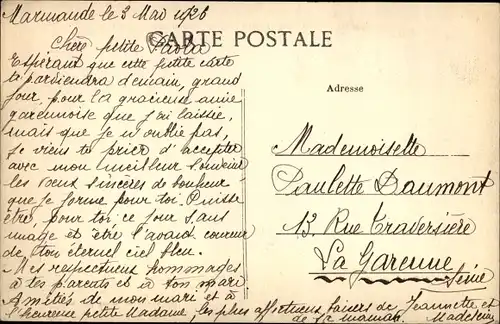 Marmande le 3 Mai 1926
CARTE POSTALE
Chère petite
Espérant que cette petite carte
te parviendra demain, grand
jour, pour la gracieuse amie
garennoise que j'ai laissée,
mais que je n'oublie pas,
je viens te prier d'accepter
avec mon meilleur souvenir
les vœux sincères de bonheur
que je forme pour toi. Puisse
être, pour toi ce jour sans
nuage et être l'avant coureur
de ton éternel ciel bleu.
Mes respectueux hommages
à tes parents et à ton mari
Amitiés de mon mari et à
l'heureuse petite Madame, les plus affectueux baisers de Jeannette et
de sa maman. Madeleine
Adresse
Mademoiselle
Paulette Daumont
13, Rue Traversière
La Garenne
Seine